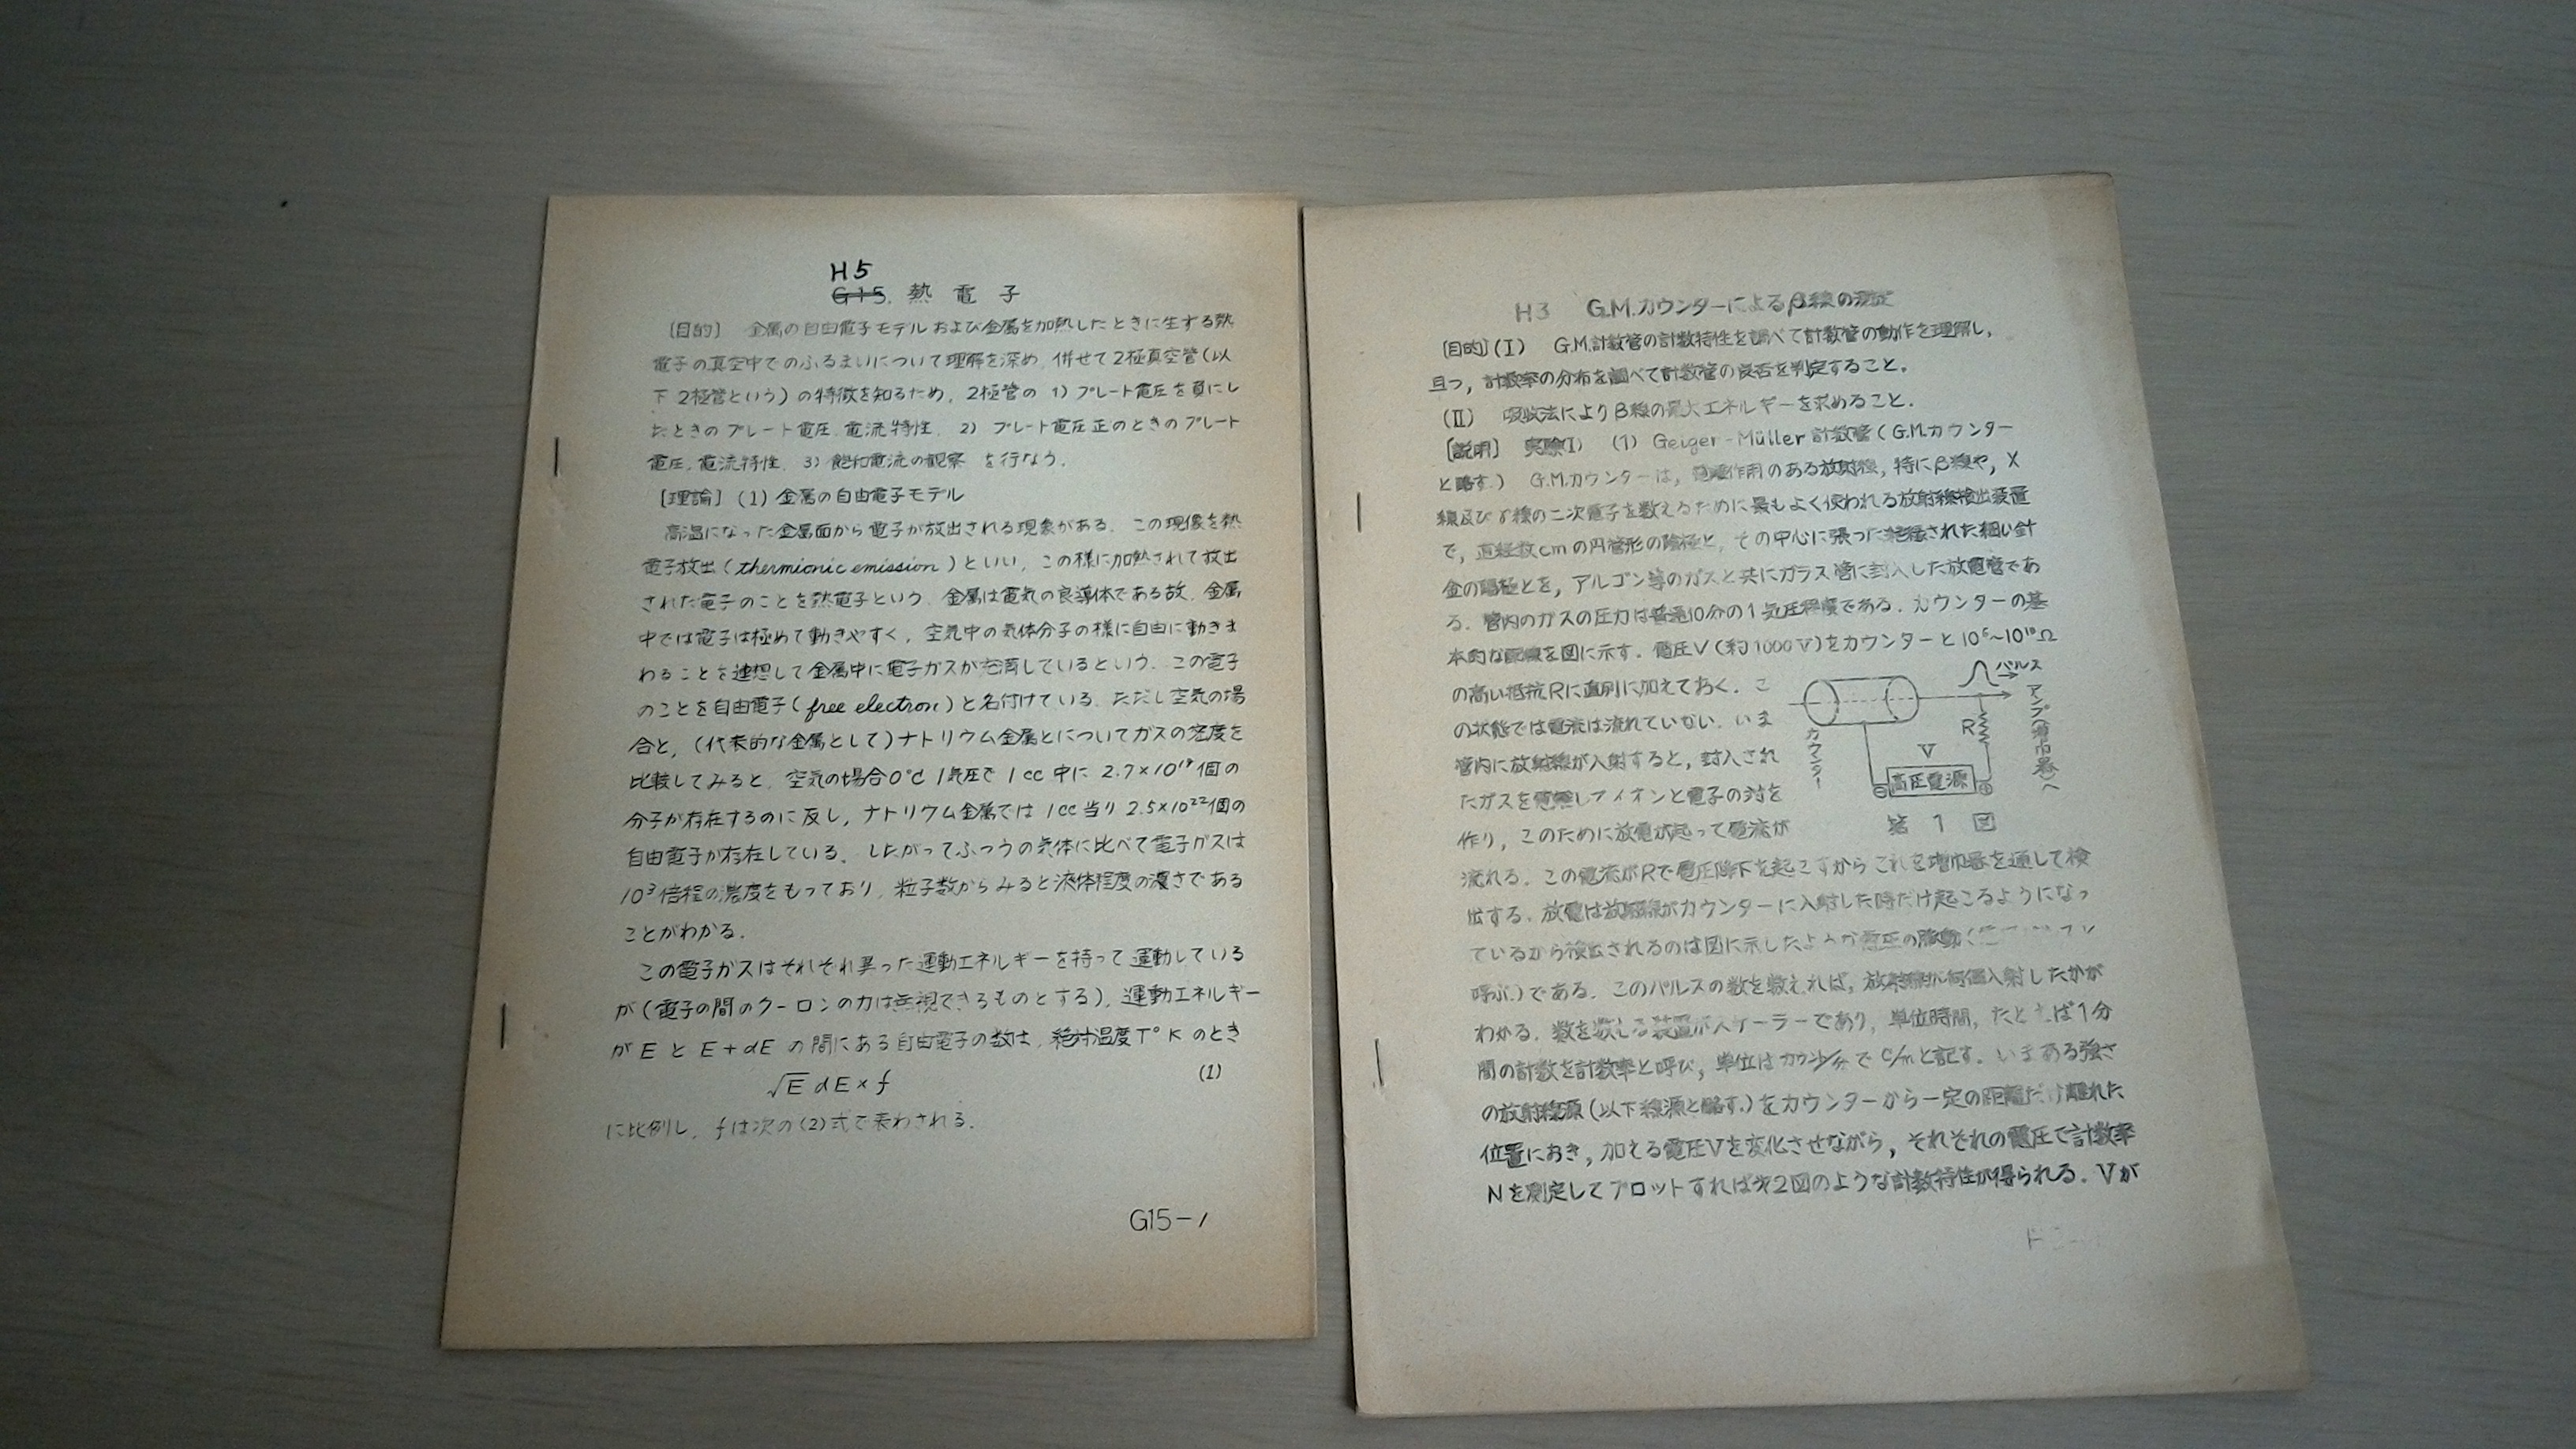 H5
G15. 熱電子
〔目的〕 金属の自由電子モデルおよび金属を加熱したときに生する熱
電子の真空中でのふるまいについて理解を深め, 併せて2極真空管(以
下2極管という)の特徴を知るため, 2極管の 1) プレート電圧を負にし
たときのプレート電圧, 電流特性, 2) プレート電圧正のときのプレート
電圧, 電流特性, 3) 飽和電流の観察 を行なう.
〔理論〕(1) 金属の自由電子モデル
高温になった金属面から電子が放出される現象がある. この現像を熱
電子放出(thermionic emission)といい, この様に加熱されて放出
された電子のことを熱電子という. 金属は電気の良導体である故, 金属
中では電子は極めて動きやすく, 空気中の気体分子の様に自由に動きま
わることを連想して金属中に電子ガスが充満しているという. この電子
のことを自由電子(free electron)と名付けている. ただし空気の場
合と, (代表的な金属として)ナトリウム金属とについてガスの密度を
比較してみると, 空気の場合0°C 1気圧で1cc中に 2.7×10¹⁹個の
分子が存在するのに反し, ナトリウム金属では1cc当り2.5×10²²個の
自由電子が存在している. したがってふつうの気体に比べて電子ガスは
10³倍程の濃度をもっており, 粒子数からみると液体程度の濃さである
ことがわかる.
この電子ガスはそれそれ異った運動エネルギーを持って運動している
が(電子の間のクーロンの力は無視できるものとする), 運動エネルギー
がEとE+dEの間にある自由電子の数は, 絶対温度T°Kのとき
√E dE×f (1)
に比例し, fは次の(2)式で表わされる.
G15-1
H3 G.M.カウンターによるβ線の測定
〔目的〕(I) G.M.計数管の計数特性を調べて計数管の動作を理解し,
且つ, 計数率の分布を調べて計数管の良否を判定すること.
(II) 吸収法によりβ線の最大エネルギーを求めること.
〔説明〕 実験(I) (1) Geiger-Müller計数管(G.M.カウンター
と略す.) G.M.カウンターは, 電離作用のある放射線, 特にβ線や, X
線及びγ線の二次電子を数えるために最もよく使われる放射線検出装置
で, 直径数cmの円管形の陰極と, その中心に張った絶縁された細い針
金の陽極とを, アルゴン等のガスと共にガラス管に封入した放電管であ
る. 管内のガスの圧力は普通10分の1気圧程度である. カウンターの基
本的な配線を図に示す. 電圧V(約1000V)をカウンターと
の高い抵抗Rに直列に加えておく. こ
の状態では電流は流れていない. いま
管内に放射線が入射すると, 封入され
たガスを電離してイオンと電子の対を
作り, このために放電が起って電流が
パルス
アンプ(増巾器)へ
R
V
カウンター
高圧電源
⊖ ⊕
第1図
流れる. この電流がRで電圧降下を起こすからこれを増巾器を通して検
出する. 放電は放射線がカウンターに入射した時だけ起こるようになっ
ているから検出されるのは図に示したような電圧の脈動(
呼ぶ.)である. このパルスの数を数えれば, 放射線が何個入射したかが
わかる. 数を数える装置がスケーラーであり, 単位時間, たとえば1分
間の計数を計数率と呼び, 単位はカウント/分で c/mと記す. いまある強さ
の放射線源(以下線源と略す.)をカウンターから一定の距離だけ離れた
位置におき, 加える電圧Vを変化させながら, それそれの電圧で計数率
Nを測定してプロットすればオ2図のような計数特性が得られる. Vが